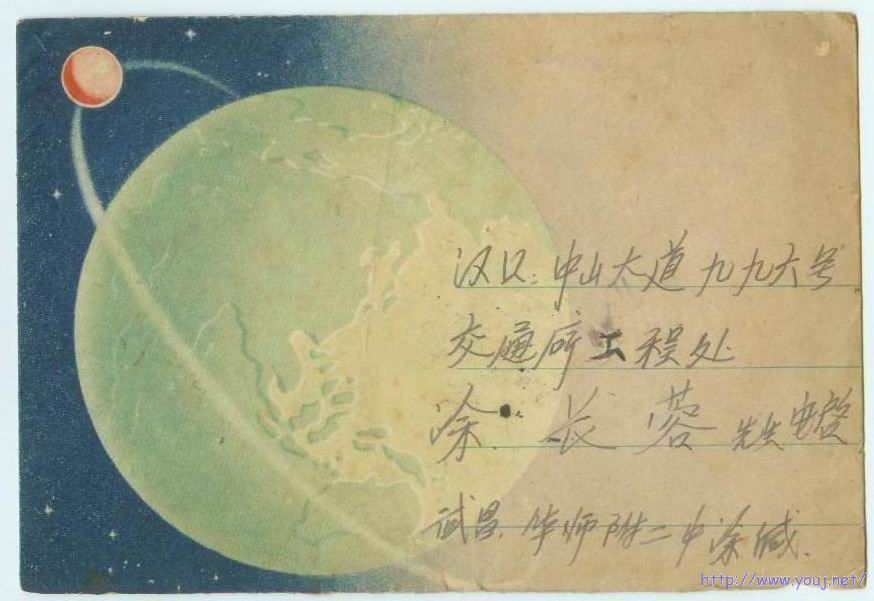 汉口:中山大道九九六号
交通厅工程处
涂长蓉 先生
武昌.华师附二中涂缄.
http://www.youj.net/